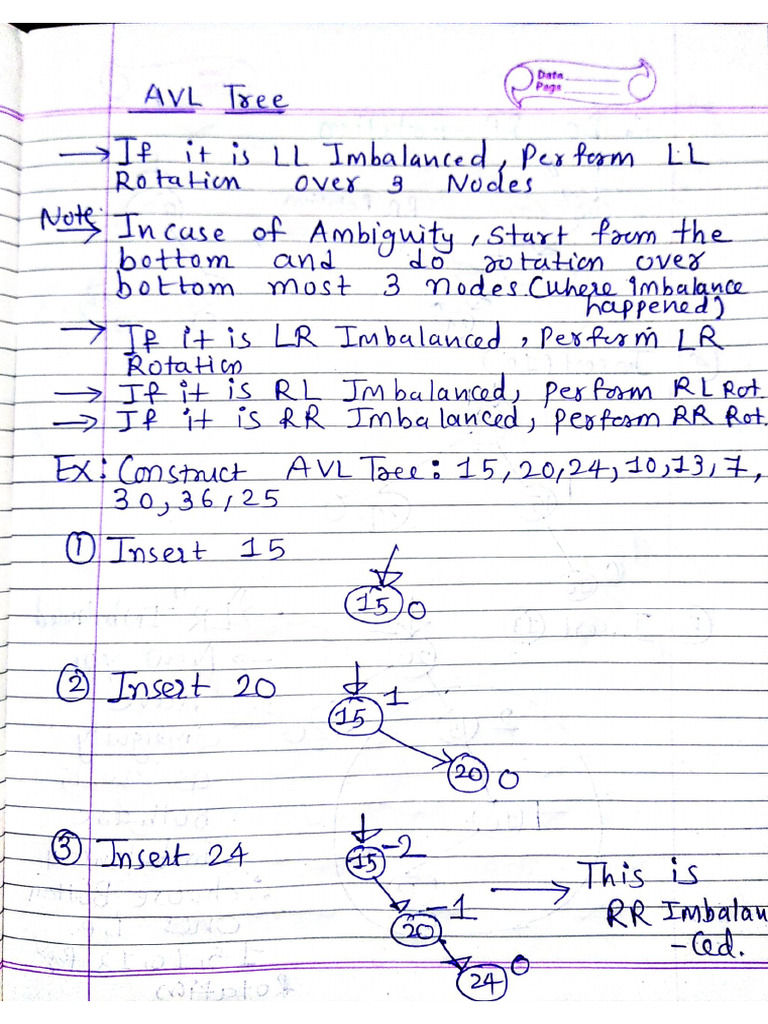 Date
Page
AVL Tree
→ If it is LL Imbalanced, Perform LL
Rotation over 3 Nodes
Note:
→ Incase of Ambiguity, Start from the
bottom and do rotation over
bottom most 3 nodes. (where imbalance
happened)
→ If it is LR Imbalanced, Perform LR
Rotation
→ If it is RL Imbalanced, perform RL Rot.
→ If it is RR Imbalanced, perform RR Rot.
Ex: Construct AVL Tree: 15, 20, 24, 10, 13, 7,
30, 36, 25
① Insert 15
15 0
② Insert 20
15 1
20 0
③ Insert 24
15 -2
20 -1
24 0
→ This is
RR Imbalan
-ced.